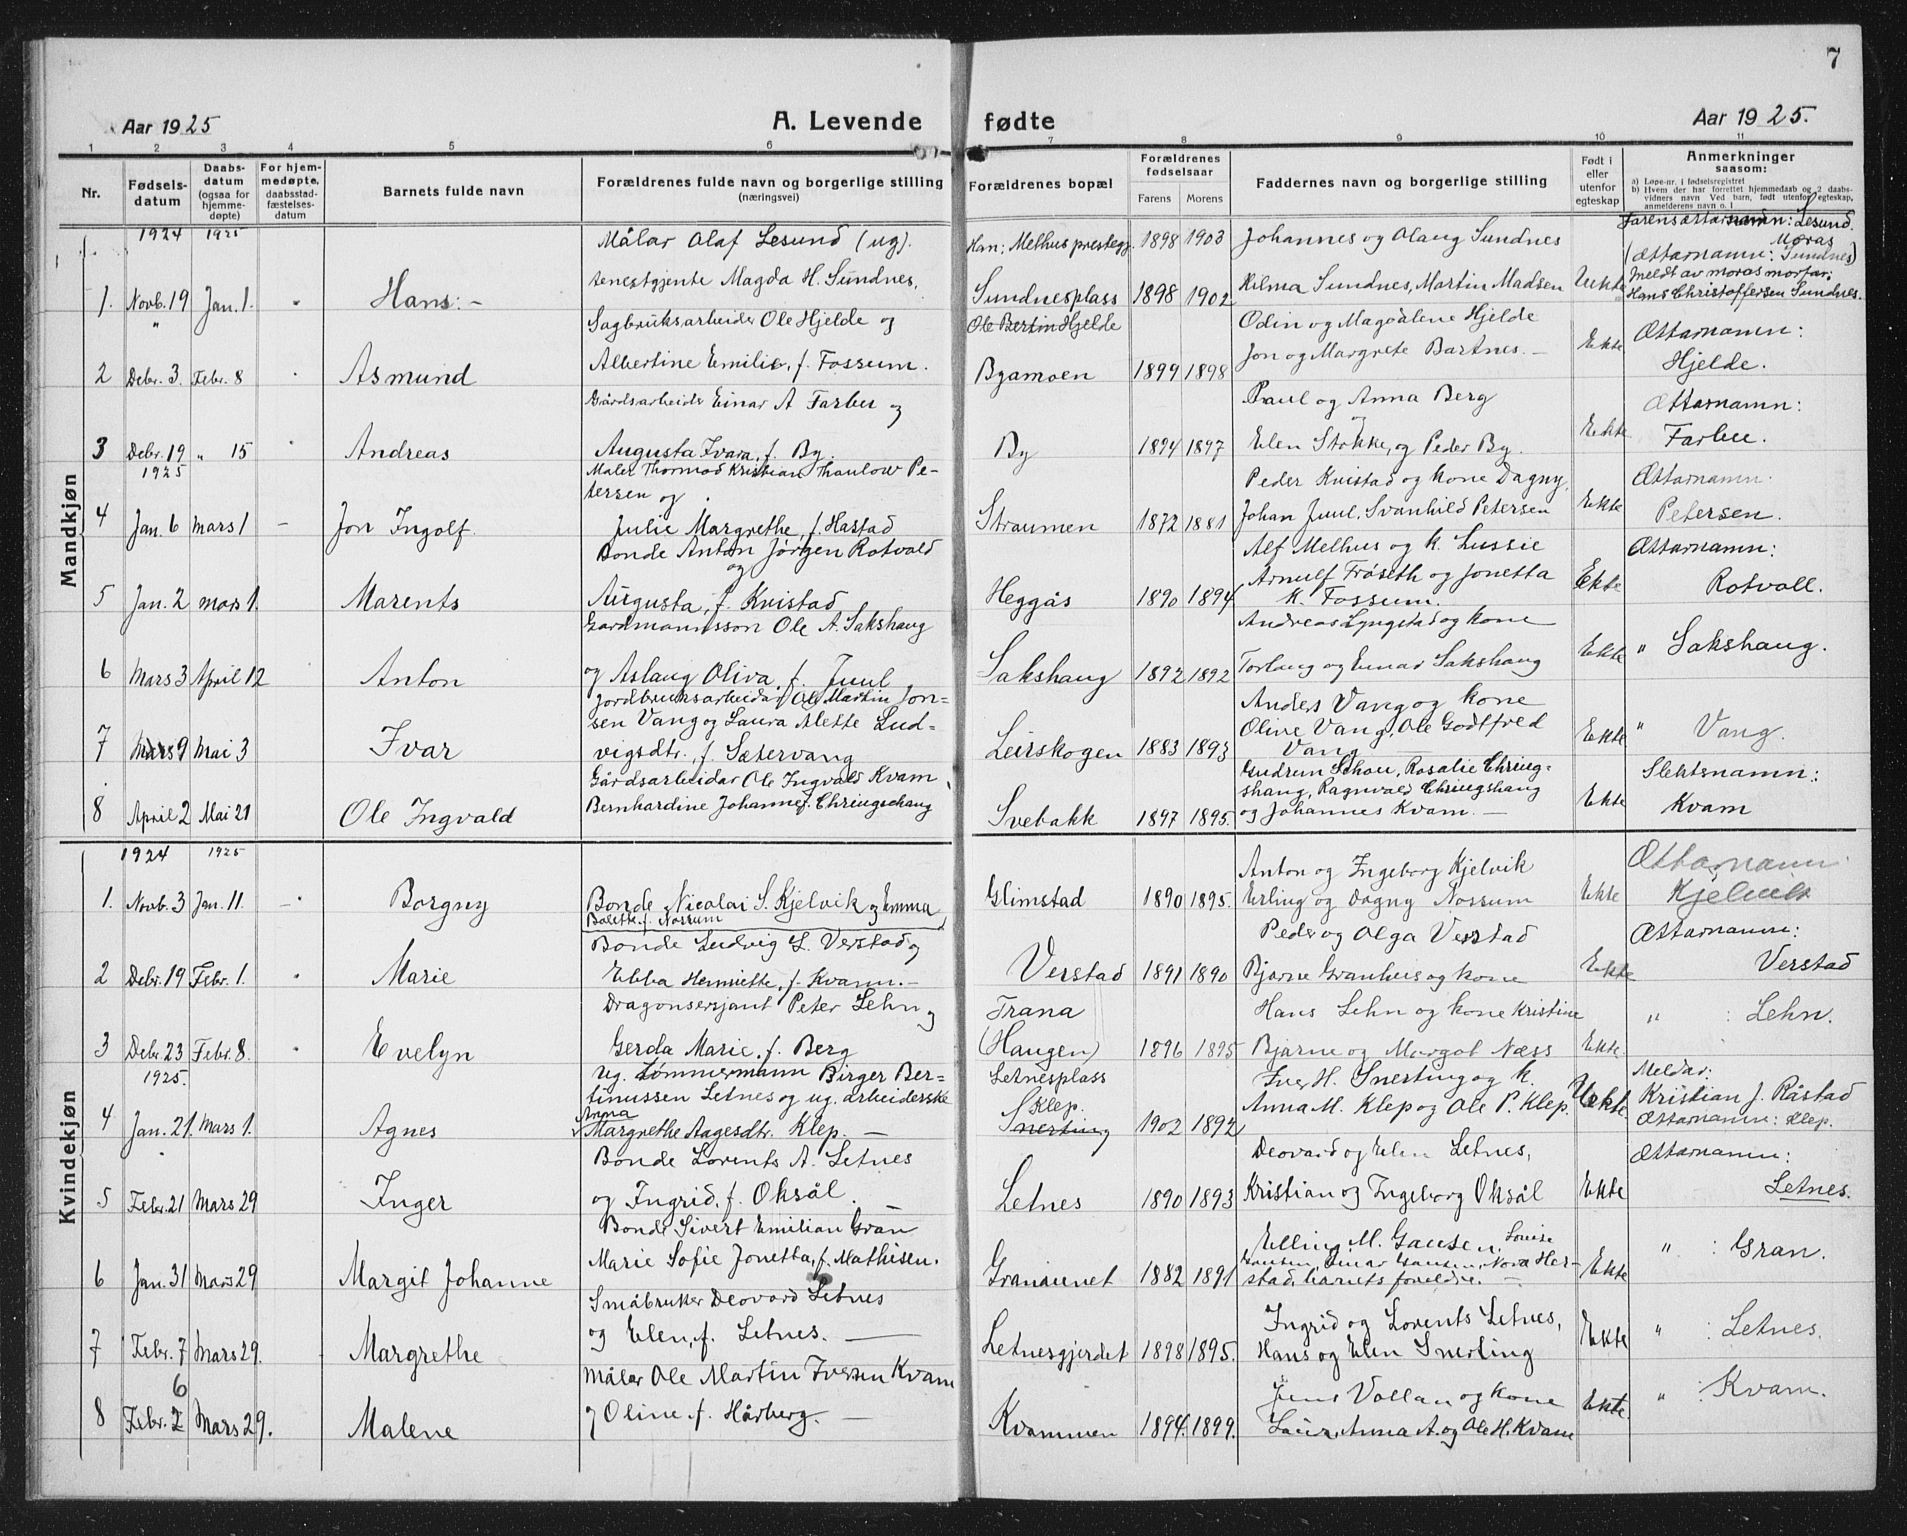 7
Aar 1925
A. Levende
fødte
Aar 1925.
1 2 3 4 5 6 7 8 9 10 11
Nr.
Fødsels-
datum
Daabs-
datum
(ogsaa for
hjemme-
døpte)
For hjem-
medøpte,
daabsstad-
fæstelses-
datum
Barnets fulde navn
Forældrenes fulde navn og borgerlige stilling
(næringsvei)
Forældrenes bopæl
Forældrenes
fødselsaar
Farens Morens
Faddernes navn og borgerlige stilling
Født i
eller
utenfor
egteskap
Anmerkninger
saasom:
a) Løpe-nr. i fødselsregistret
b) Hvem der har forrettet hjemmedaab og 2 daabs-
vidners navn Ved barn, født utenfor egteskap,
anmelderens navn o. l
Mandkjøn
1924 1925
Målar Olaf Lesund (ug).
Han: Melhus prestegj. 1898 1903 Johannes og Olaug Sundnes
Farens ættarnamn: Lesund.
Moras
(ættarnamn: Sundnes)
tenestgjente Magda H. Sundnes,
1. Novb. 19 Jan. 1. Hans: -
Sundnesplass 1898 1902 Hilma Sundnes, Martin Madsen Uekte
Meldt av moras morfar:
Hans Christoffersen Sundnes.
Sagbruksarbeider Ole Hjelde og
Ole Bertin Hjelde
Odin og Magdalene Hjelde
Ættarnamn:
2 Debr. 3. Febr. 8 Asmund
Albertine Emilie, f. Fossum.
Byamoen 1899 1898
Jon og Margrete Bartnes. - Ekte
Hjelde.
Gårdsarbeider Einar A Farbu og
Paul og Anna Berg
Ættarnamn:
3 Debr. 19 " 15 Andreas
Augusta Ivara, f. By.
By 1894 1897
Elen Stokke, og Peder By. Ekte
Farbu.
1925
Maler Thormod Kristian Thaulow Pe-
tersen og
Peder Kvistad og kone Dagny,
Ættarnamn.
4 Jan. 6 Mars 1 - Jon Ingolf.
Julie Margrethe, f. Hastad
Straumen 1872 1881
Johan Juul, Svanhild Petersen Ekte
Petersen.
Bonde Anton Jørgen Rotvold
og
Alf Melhus og k. Lussie
Ættarnamn:
5 Jan. 2 Mars 1. Marents
Augusta, f. Kvistad
Heggås 1890 1894
Arnulf Frøseth og Jonetta
K. Fossum. Ekte
Rotvoll.
Gardmannsson Ole A. Sakshaug
Andreas Lyngstad og kone
6 Mars 3 April 12 Anton
og Aslaug Oliva, f. Juul
Sakshaug 1892 1892
Torlaug og Einar Sakshaug Ekte
" Sakshaug.
Jordbruksarbeidar Ole Martin Jon-
sen Vang og Laura Mette Lud-
vigsdtr. f. Sætervang
Anders Vang og kone
Olive Vang, Ole Godtfred
Vang
7 Mars 9 Mai 3 Ivar
Leirskogen 1883 1893 Ekte
" Vang.
Gårdsarbeidar Ole Ingvald Kvam
Bernhardine Johanne f. Chringshaug
Gudrun Schou, Rosalie Chring-
shaug, Ragnvald Chringshaug
og Johannes Kvam. -
Slektsnamn:
8 April 2 Mai 21 Ole Ingvald
Svebakk 1897 1895. Ekte
Kvam
Kvindekjøn
1924 1925
Anton og Ingeborg Kjelvik
Ættarnamn
1. Novb. 3 Jan. 11. - Borgny
Bonde Nicolai S. Kjelvik og Emma
Bolette f. Nossum
Glimstad 1890 1895.
Erling og Dagny Nossum Ekte
Kjelvik
Bonde Ludvig L. Verstad og
Peder og Olga Verstad
Ættarnamn:
2 Debr. 19 Febr. 1. Marie
Ebba Henriette, f. Kvam. -
Verstad 1891 1890
Bjarne Granheis og kone Ekte
Verstad
Dragonsersjant Peter Lehn og
Trana
Hans Lehn og kone Kristine
" : Lehn.
3 Debr. 23 Febr. 8. Evelyn
Gerda Marie, f. Berg
(Haugen) 1896 1895
Bjarne og Margot Næss Ekte
1925.
Ug. tømmermann Birger Ber-
tinussen Letnes og ug. arbeiderske
Anna
Margrethe Aagesdtr. Klep. -
Letnesplass
Klep.
Snerting 1902 1892
Iver H. Snerting og k.
Anna M. Klep og Ole P. Klep. Uekte
Meldar:
Kristian J. Råstad
Ættarnamn: Klep.
4 Jan. 21. Mars 1. Agnes
Bonde Lorents A. Letnes
Deovard og Elen Letnes,
Ættarnamn:
5 Febr. 21 Mars 29 Inger
og Ingrid, f. Oksål.
Letnes 1890 1893
Kristian og Ingeborg Oksål Ekte
Letnes.
Bonde Sivert Emilian Gran
Elling M. Gausen, Louise
" : Gran.
6 Jan. 31 Mars 29 Margit Johanne
Marie Sofie Jonetta, f. Mathisen.
Granaunet 1882 1891
Gausen, Einar Gausen, Nora Her-
stad, barnets foreldre. - Ekte
Småbruker Deovard Letnes
Ingrid og Lorents Letnes,
" : Letnes.
7 Febr. 7 Mars 29. Margrethe
og Elen, f. Letnes. -
Letnesgjerdet 1898 1895.
Hans og Elen Snerting Ekte
6
Målar Ole Martin Iversen Kvam
Jens Vollan og kone
" : Kvam.
8 Febr. 2 Mars 29. Malene
og Oline f. Hårberg. -
Kvammen 1894. 1899.
Laura, Anna A. og Ole H. Kvam Ekte.